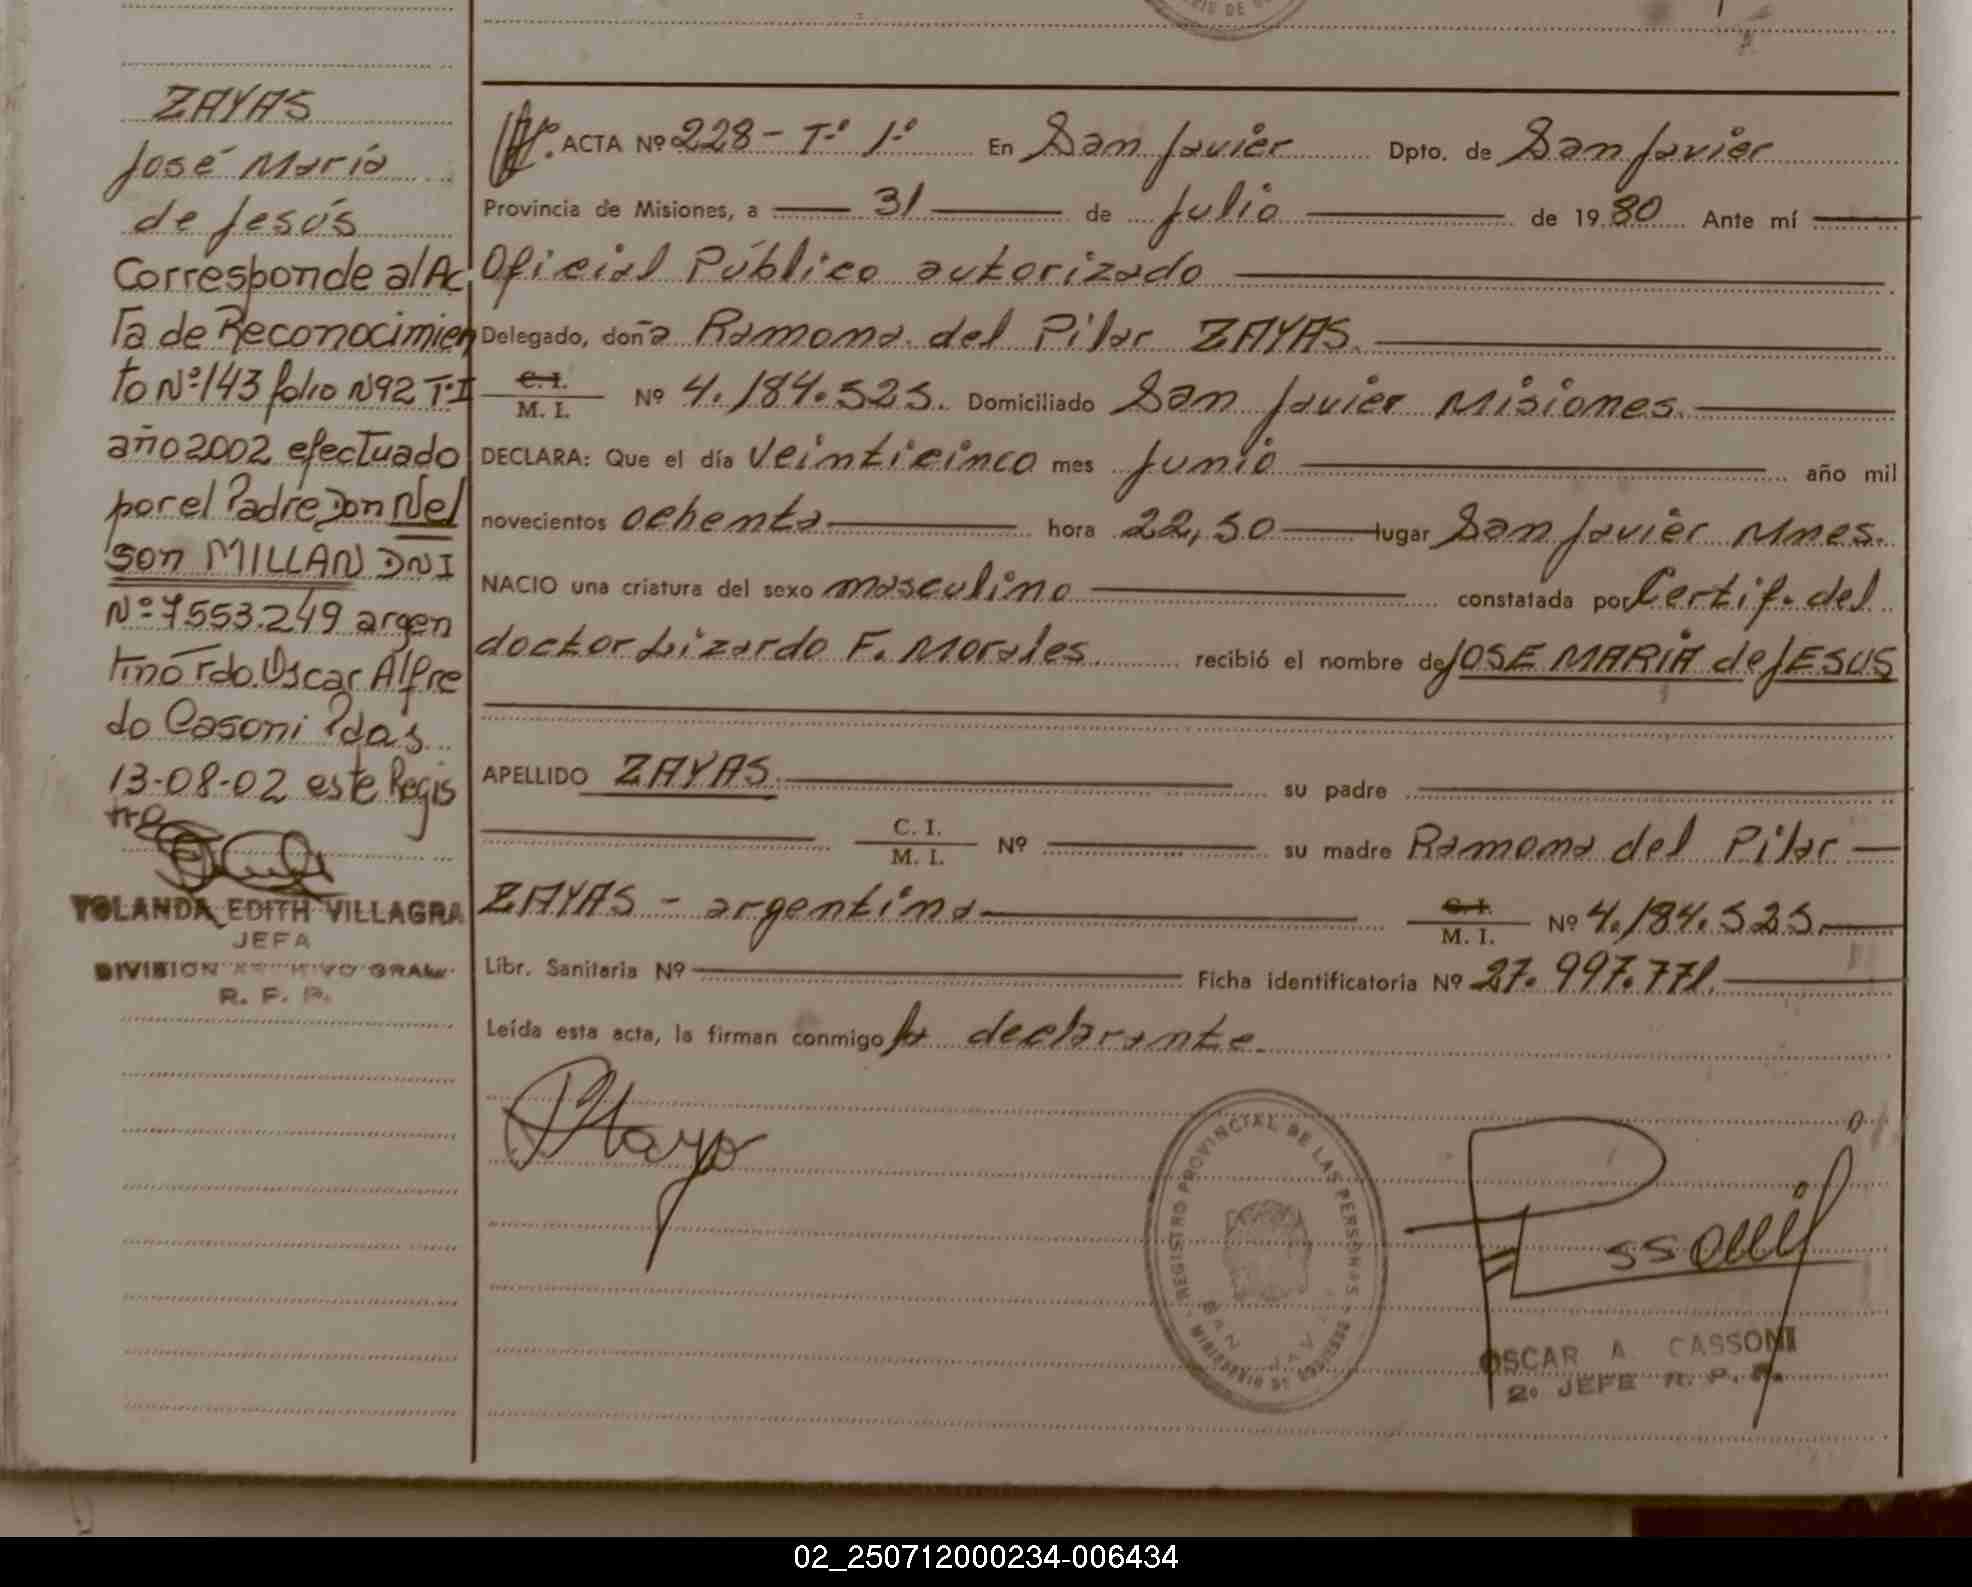 ZAYAS
José María
de Jesús
Corresponde al Ac
Ta de Reconocimien
to Nº 143 folio Nº92 Tº I
año 2002 efectuado
por el Padre Don Nel
son MILLAN DNI
Nº 7553.249 argen
tino Fdo. Oscar Alfre
do Casoni Pdas.
13-08-02 este Regis
tro
YOLANDA EDITH VILLAGRA
JEFA
DIVISION ARCHIVO GRAL.
R. P. P.
ACTA Nº 228 - Tº 1º En San Javier Dpto. de San Javier
Provincia de Misiones, a 31 de Julio de 1980 Ante mí
Oficial Público autorizado
Delegado, doña Ramona del Pilar ZAYAS.
C. I.
M. I. Nº 4.184.525. Domiciliado San Javier Misiones.
DECLARA: Que el día Veinticinco mes Junio año mil
novecientos ochenta hora 22,50 lugar San Javier Mnes.
NACIO una criatura del sexo masculino constatada por Certif. del
doctor Lizardo F. Morales. recibió el nombre de JOSE MARIA de JESUS
APELLIDO ZAYAS. su padre
C. I.
M. I. Nº su madre Ramona del Pilar
ZAYAS - argentina C. I.
M. I. Nº 4.184.525.
Libr. Sanitaria Nº Ficha identificatoria Nº 27.997.771.
Leída esta acta, la firman conmigo la declarante.
REGISTRO PROVINCIAL DE LAS PERSONAS
MINISTERIO DE GOBIERNO
SAN JAV
OSCAR A. CASSONI
2º JEFE R. P. P.
02_250712000234-006434